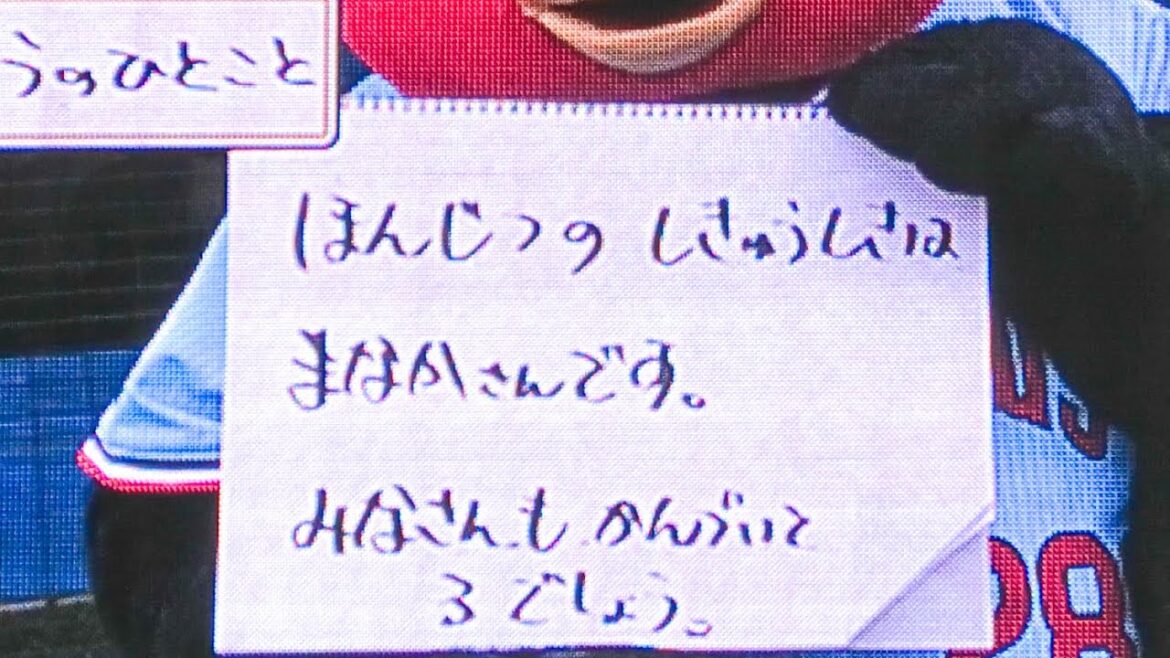 うのひとこと
ほんじつの しきゅうしきは
まなかさんです。
みなさんも かんづいと
るでしょう。
28